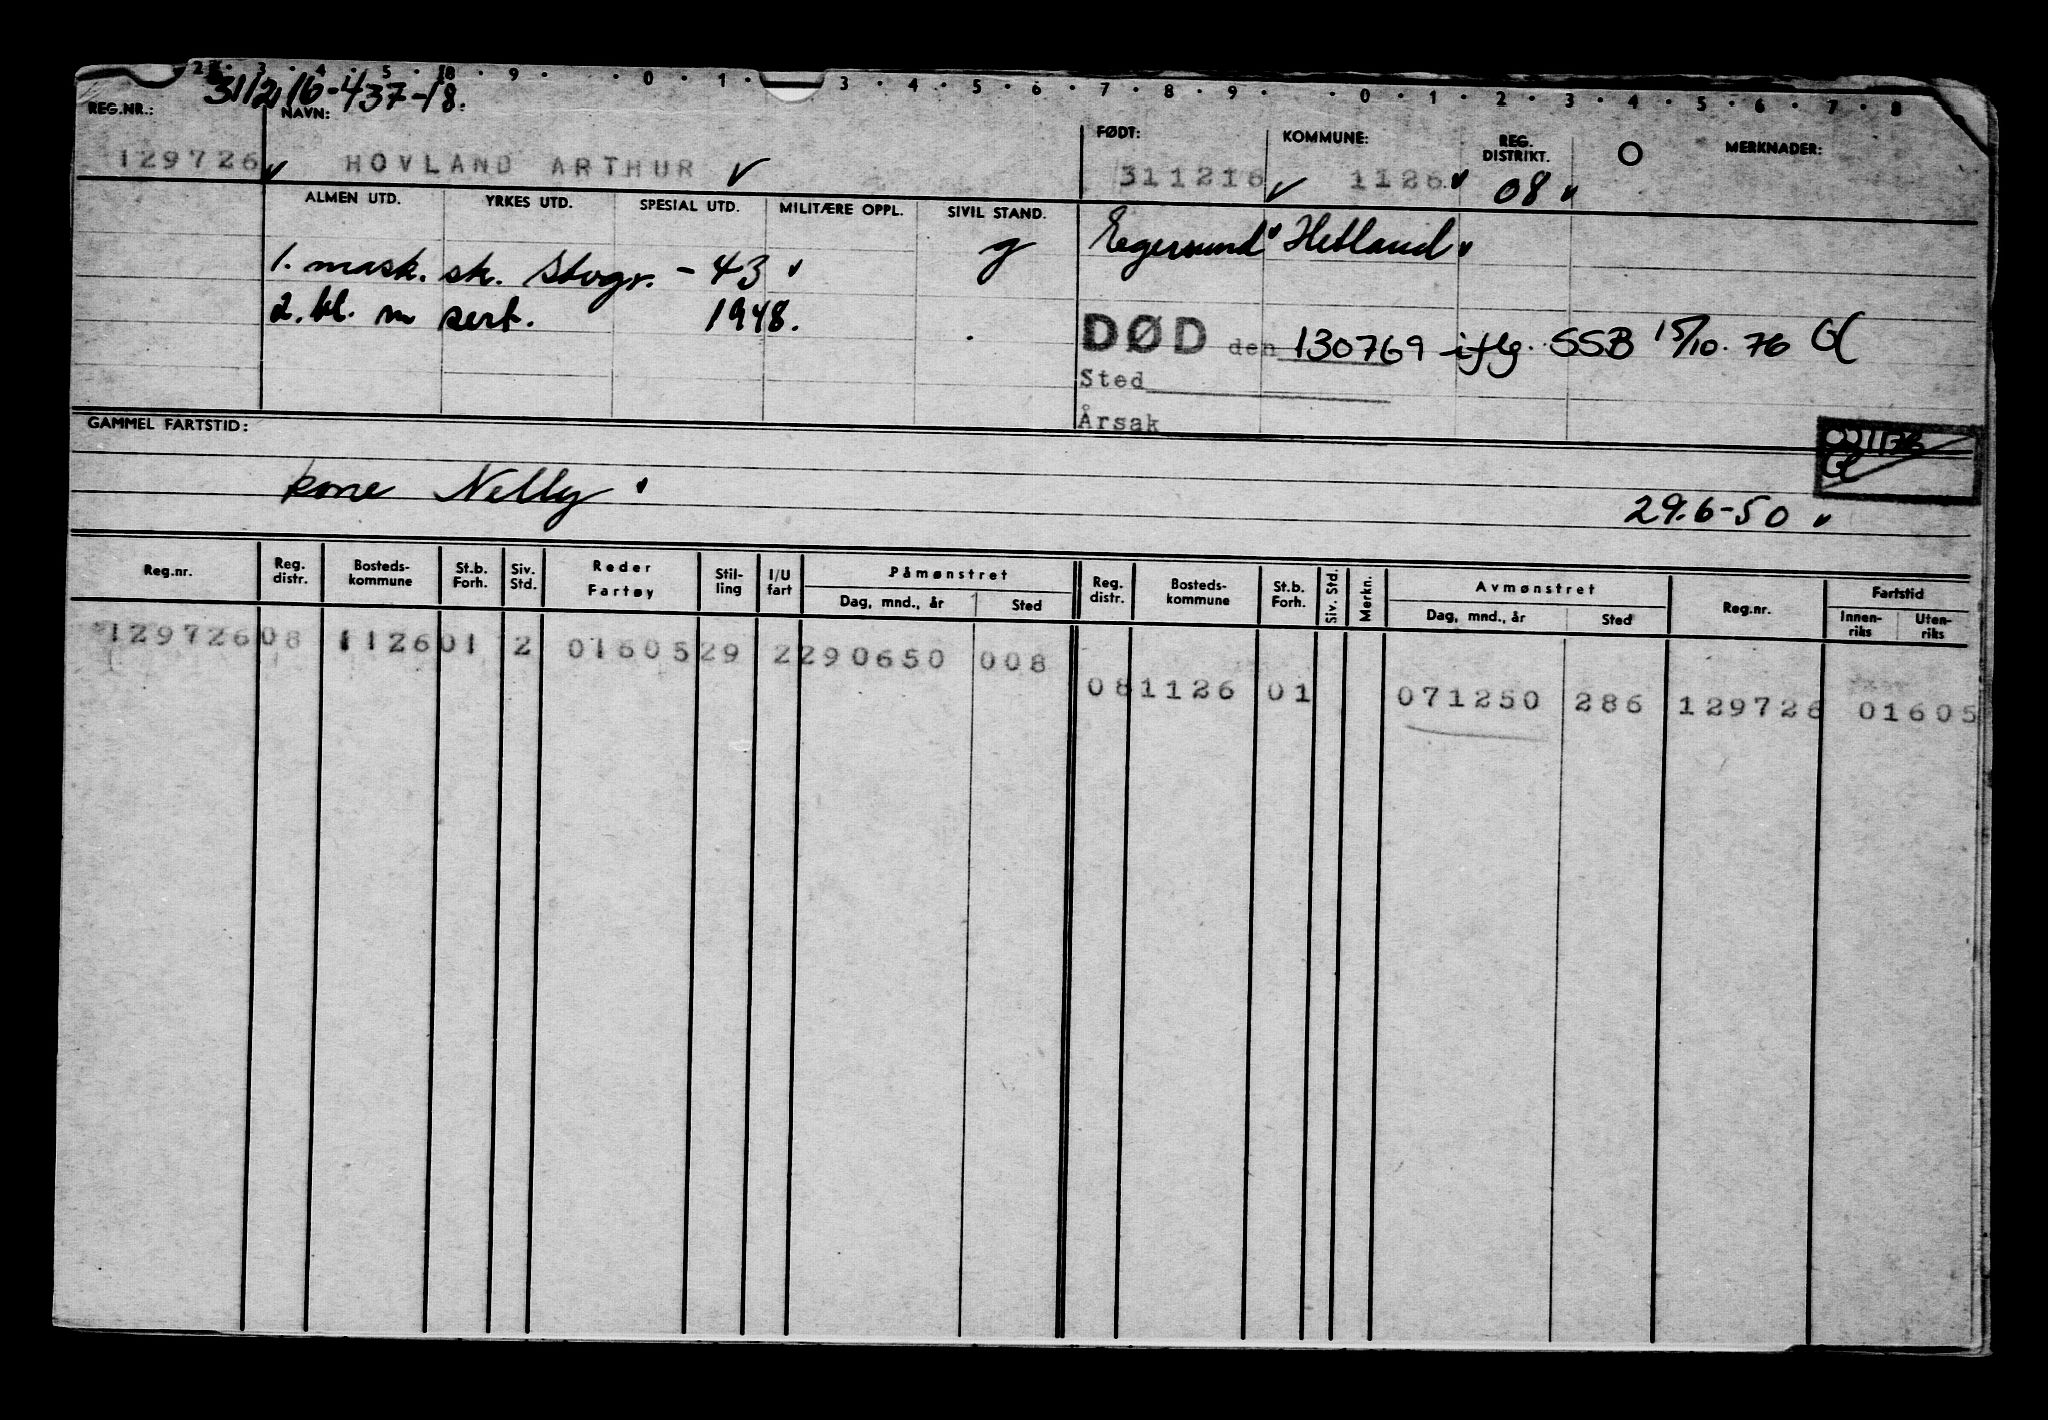 2 · 3 · 4 · 5 · 8 · 9 · · 0 · 1 · 3 · 4 · 5 · 6 · 7 · 8 · 9 · · 0 · 1 · 2 · 3 · 4 · 5 · 6 · 7 · 8
311216-437-18.
REG.NR.: NAVN: FØDT: KOMMUNE: REG. DISTRIKT. MERKNADER:
129726 HOVLAND ARTHUR 311216 1126 08
ALMEN UTD. YRKES UTD. SPESIAL UTD. MILITÆRE OPPL. SIVIL STAND.
g Egersund Hetland
1. mask. sk. Stvgr. - 43
2. kl. m sert. 1948.
DØD den 130769 iflg. SSB 15/10. 76
Sted
Årsak
GAMMEL FARTSTID:
kone Nelly
29.6-50
Reg.nr. Reg. distr. Bosteds-kommune St.b. Forh. Siv. Std. Reder Fartøy Stil-ling I/U fart Påmønstret Dag, mnd., år Sted Reg. distr. Bosteds-kommune St.b. Forh. Siv. Std. Merkn. Avmønstret Dag, mnd., år Sted Reg.nr. Fartstid Innen-riks Uten-riks
129726 08 1126 01 2 01605 29 2 290650 008
08 1126 01 071250 286 129726 01605